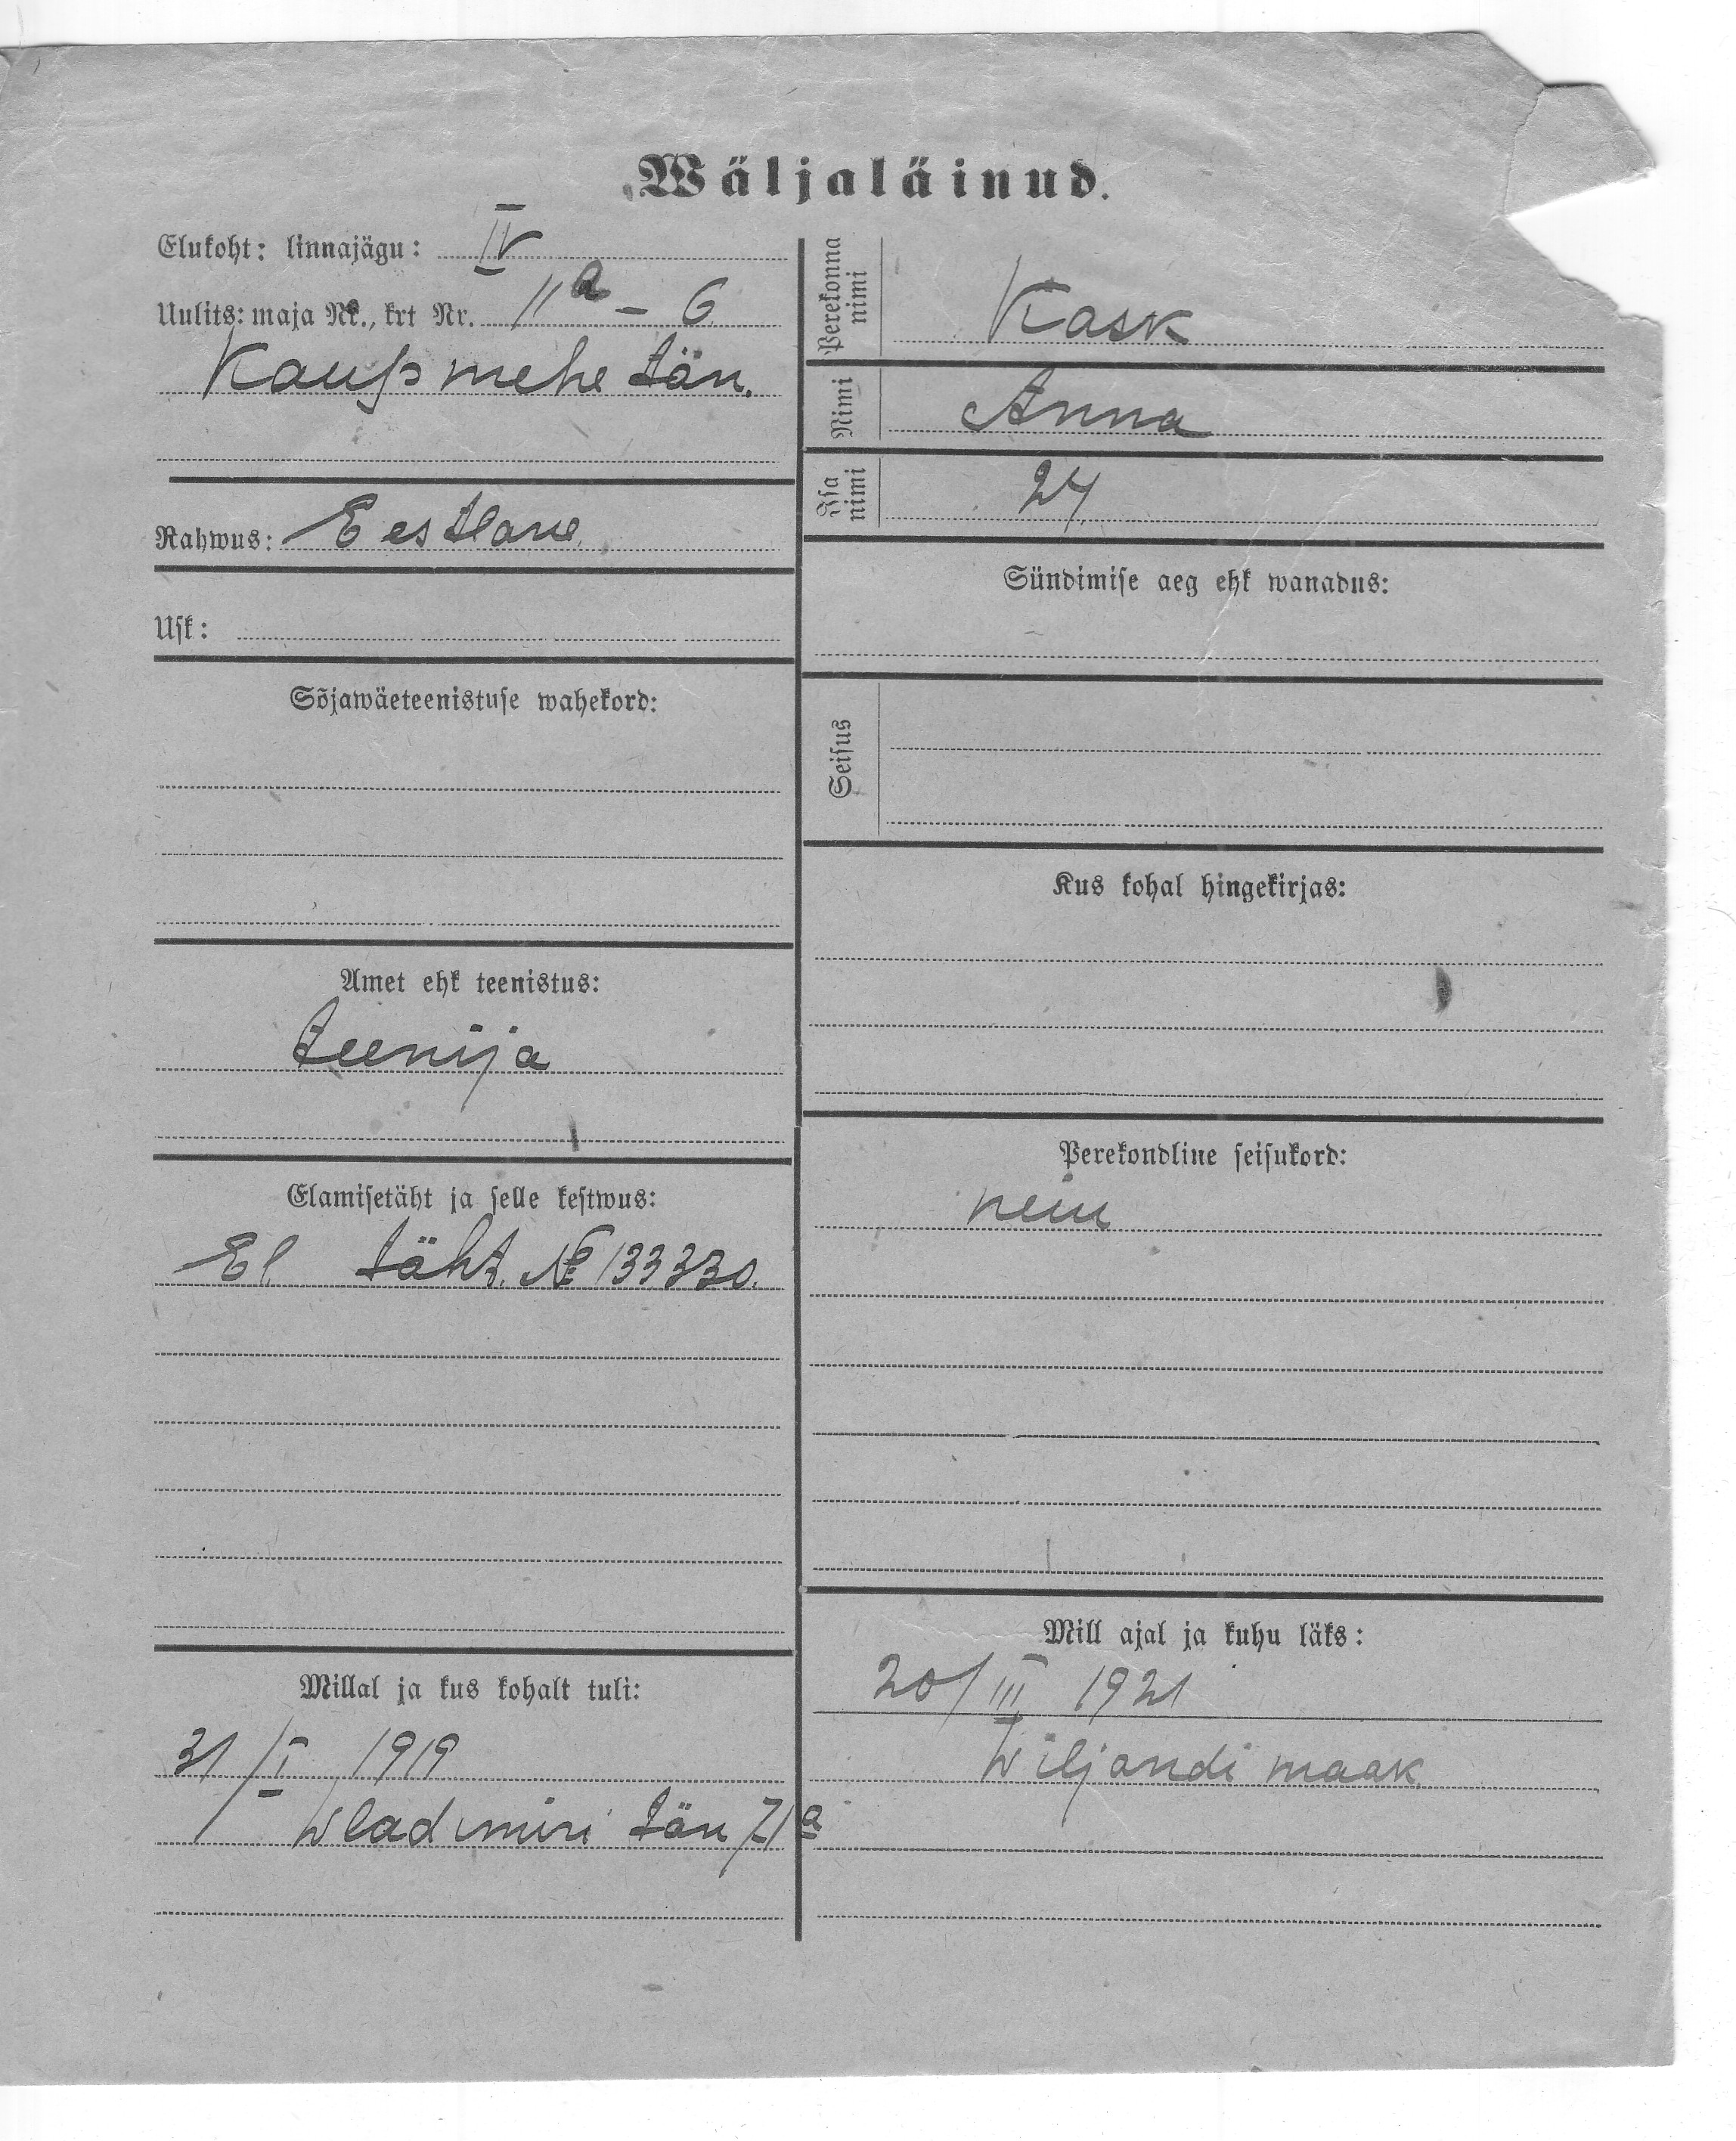 Wäljaläinud.
Elukoht: linnajägu: IV
Uulits: maja Nr., krt Nr. 11a – 6
Kaupmehe tän.
Rahwus: Eestlane
Usk:
Sõjawäeteenistuse wahekord:
Amet ehk teenistus:
teenija
Elamisetäht ja selle kestwus:
El täht. № 133330.
Millal ja kus kohalt tuli:
31/I 1919
Wladimiri tän 71a
Perekonna nimi Kask
Nimi Anna
Isa nimi 24
Sündimise aeg ehk wanadus:
Seisus
Kus kohal hingekirjas:
Perekondline seisukord:
neiu
Mill ajal ja kuhu läks:
20/III 1921
Wiljandi maak